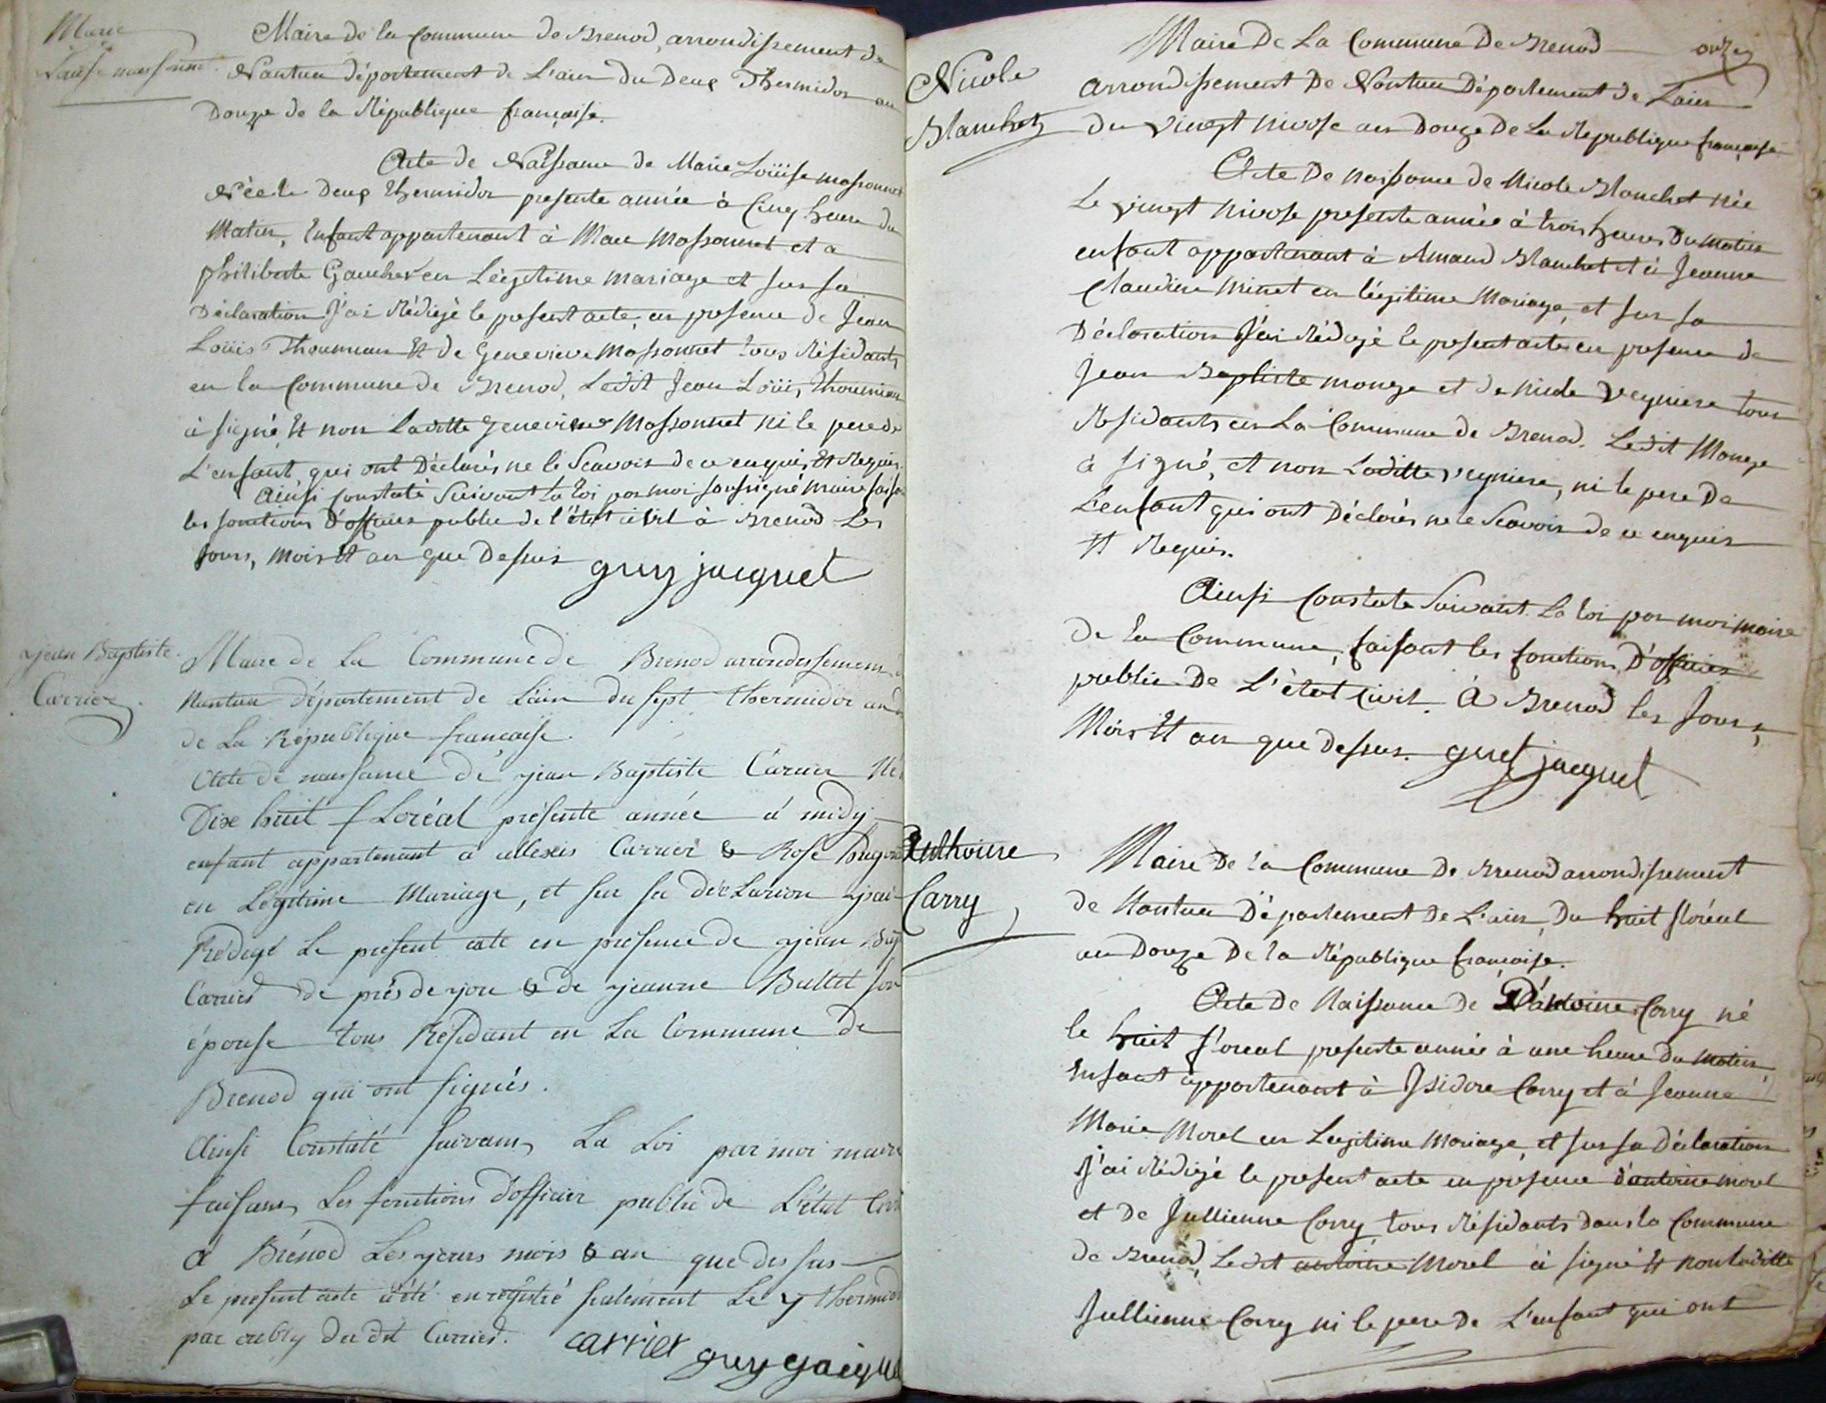 Marie
Louise massonnet
Maire de la Commune de Brenod, arrondissement de
Nantua département de L'ain du Deux Thermidor an
Douze de la République française.
Acte de Naissance de Marie Loüise massonnet
Née le Deux thermidor presente année à Cinq heure du
Matin, Enfant appartenant à Marc Massonnet et a
philiberte Gauchet en Légitime mariage et sur sa
Déclaration J'ai Rédigé le present acte, en presence de Jean
Loüis Thoumian Et de Genevieve Massonnet tous Résidants
en la Commune de Brenod, Ledit Jean Loüis thoumian
à signé Et non Laditte Genevieve Massonnet ni le pere de
L'enfant qui ont Déclarés ne le Scavoir de ce enquis, Et Requis.
Ainsi constaté Suivant la loi par moi soussigné maire fais
les fonctions D'officier public de l'état civil à Brenod Les
Jours, mois Et an que Dessus guy jacquet
jean Baptiste
Carrier
Maire de La Commune de Brenod arrondissement
Nantua département de L'ain du sept thermidor an
de La République francaise.
Acte de naissance de jean Baptiste Carrier Né
Dix huit floréal présente année à midy
enfant appartenant à allexis Carrier & Rose
en Légitime Mariage, et sur sa déclarion j'ai
Rédigé Le present acte en présence de jean
Carrier de près de jou & de jeanne Bullet son
épouse tous Résidant en La Commune de
Brenod qui ont signés.
Ainsi Constaté suivant La Loi par moi maire
faisant Les fonctions d'officier public de L'état Civil
à Brénod Les jours mois & an que dessus
Le present acte a été enregistré seulement Le 7 thermidor
par oubly du dit Carrier. carrier guy jacquet
onze
Nicole
Blanchet
Maire De La Commune De Brenod
arrondissement De Nantua Département de L'ain
du vingt nivose an Douze De La République française
Acte De naissance de Nicole Blanchet née
Le vingt nivose presente année à trois heures Du matin
enfant appartenant à Amand Blanchet et à Jeanne
Claudine Minet en légitime Mariage, et sur sa
Déclaration J'ai Rédigé le present acte, en presence de
Jean Baptiste monge et de nicole veyniere tous
Résidants en La Commune de Brenod. Ledit Monge
à signé, et non Laditte veyniere, ni le pere De
L'enfant qui ont Déclarés ne le Scavoir de ce enquis
Et Requis.
Ainsi Constaté Suivant La loi par moi maire
de la Commune, faisant les fonctions D'officier
public De L'état civil. A Brenod les Jours,
Mois Et an que dessus. guy jacquet
Anthoine
Carry
Maire De la Commune De Brenod arrondissement
de Nantua Département De L'ain, Du huit floréal
an Douze De la République française.
Acte De Naissance de D'antoine Carry né
le huit floreal presente année à une heure du matin
Enfant appartenant à Isidore Carry et à Jeanne
Marie Morel en Legitime Mariage, et sur sa Déclaration
J'ai Rédigé le present acte en presence d'antoine morel
et De Jullienne Carry tous Résidants dans la Commune
de Brenod, Ledit antoine Morel à signé Et non laditte
Jullienne Carry ni le pere De L'enfant qui ont